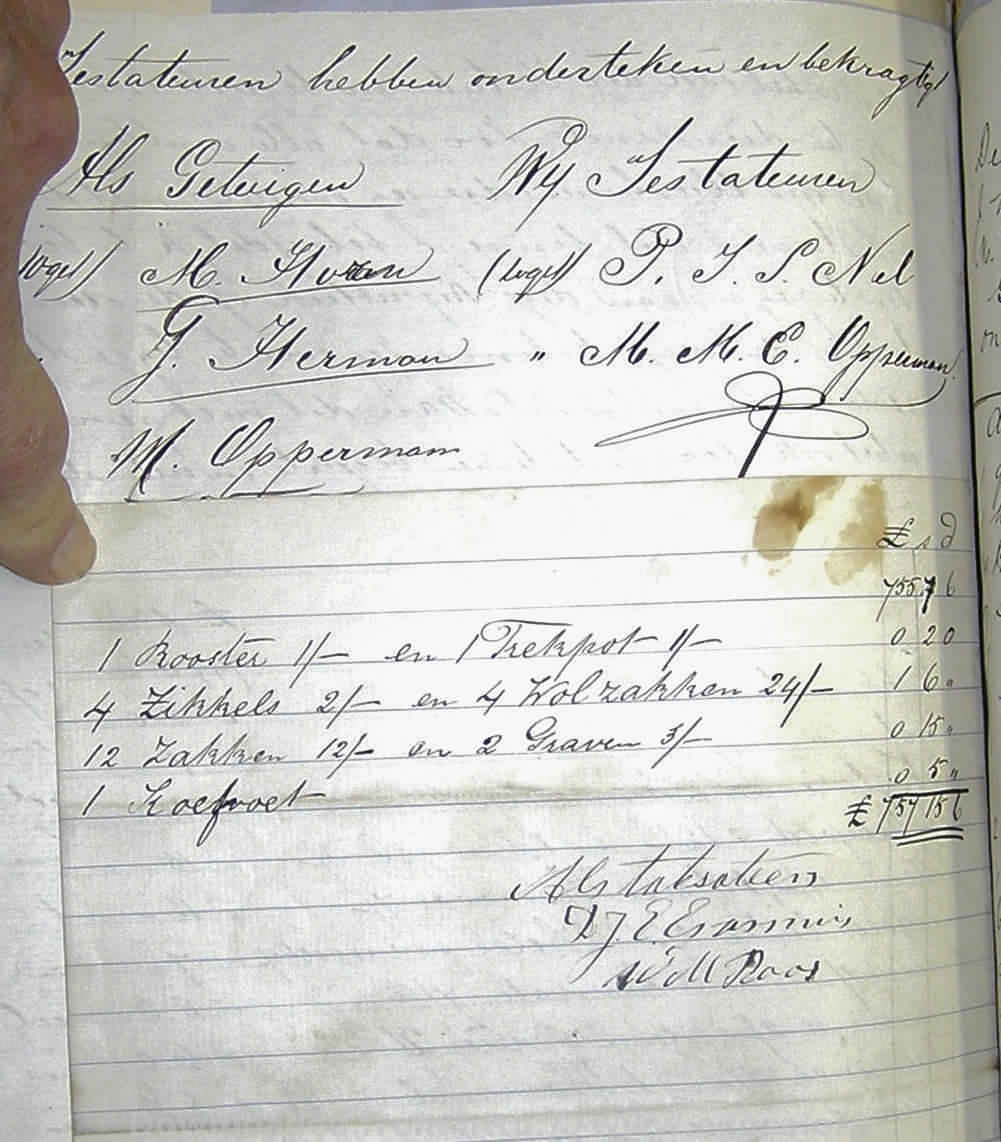 Testateuren hebben onderteken en bekragtigd
Als Getuigen Wy Testateuren
M. (weget) P. J. S. Nel
G. Herman " M. M. E. Opperman
M. Opperman
£ s d
755 7 6
1 Rooster 1/– en 1 Trekpot 1/– 0 2 0
4 Zikkels 2/– en 4 Wolzakken 24/– 1 6 "
12 Zakken 12/– en 2 Graven 3/– 0 15 "
1 Koefvoet 0 5 "
£ 757 15 6
Als taksateurs
D J E Erasmus
W M Roos